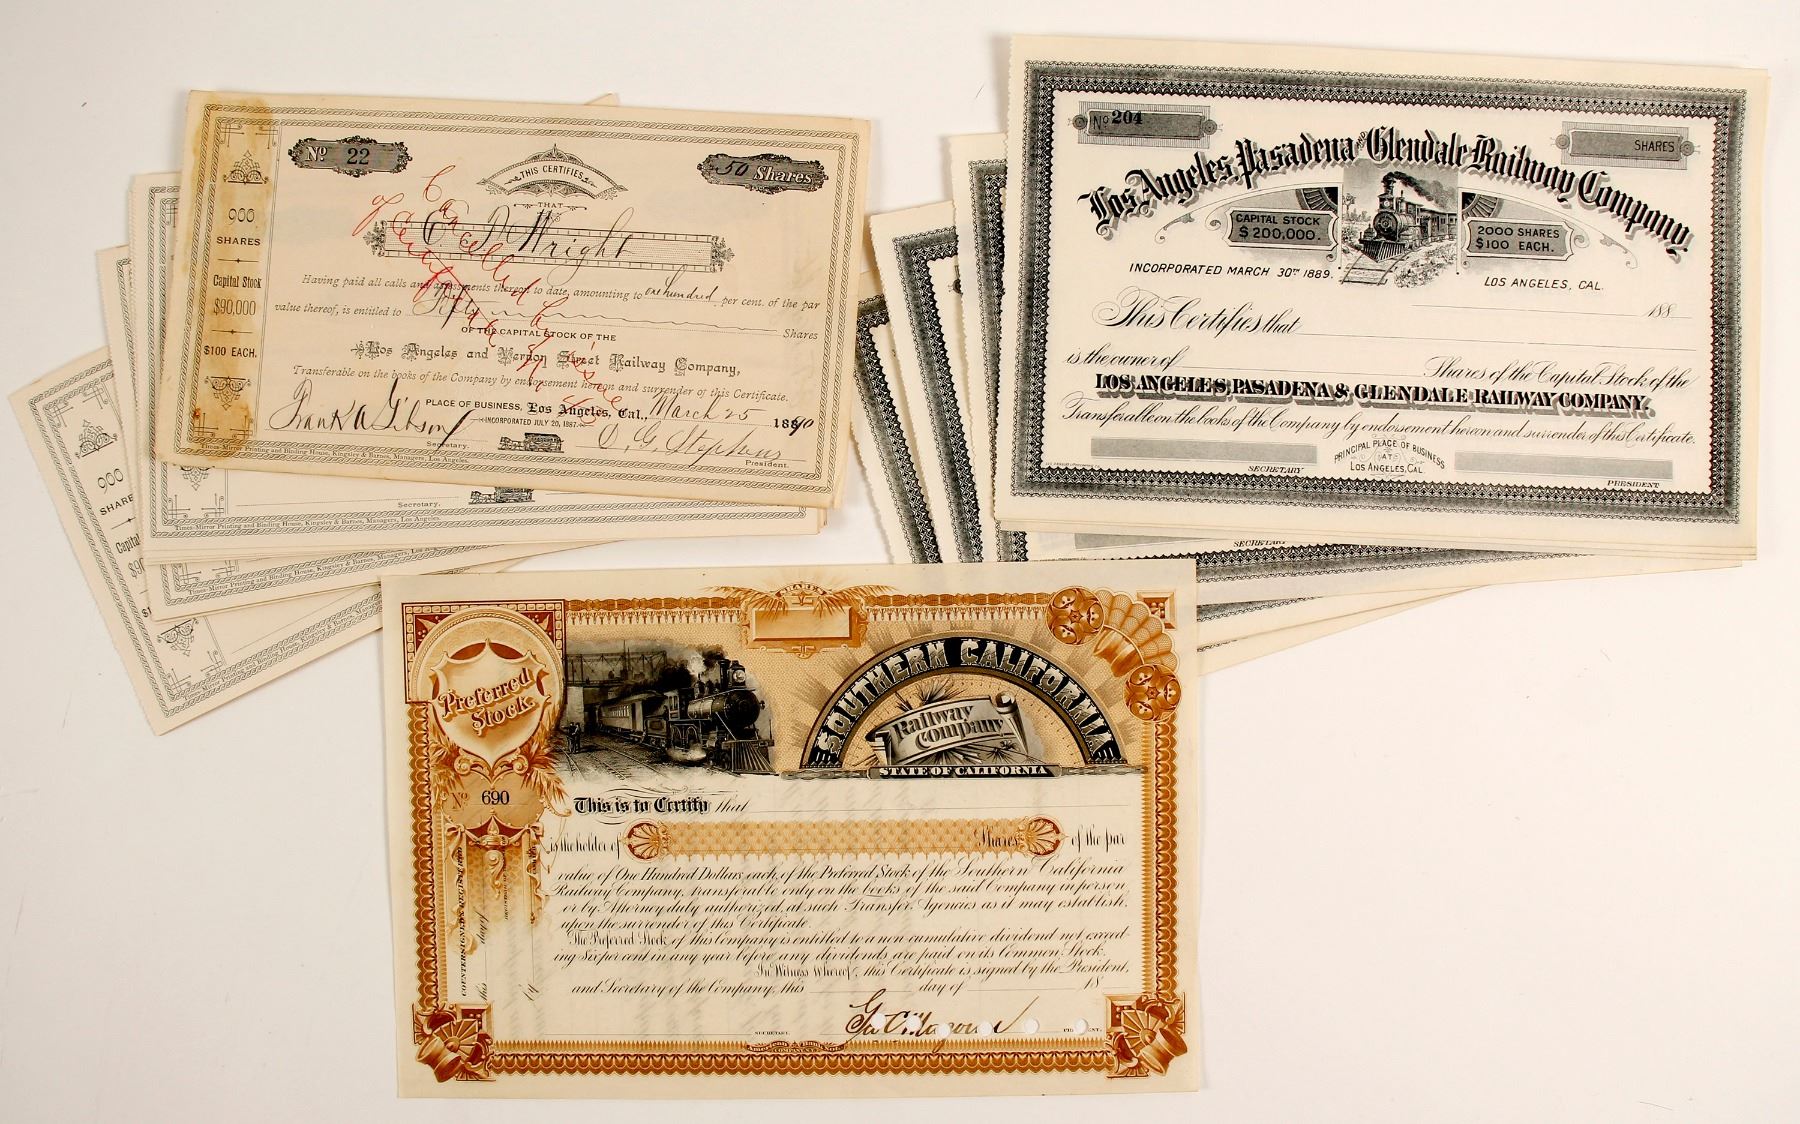 Nº 22
THIS CERTIFIES
THAT
50 Shares
E D Wright
Cancelled by
900
SHARES
Capital Stock
$90,000
$100 EACH.
Having paid all calls and assessments thereon to date, amounting to one hundred per cent. of the par
value thereof, is entitled to Fifty Shares
OF THE CAPITAL STOCK OF THE
Los Angeles and Vernon Street Railway Company,
Transferable on the books of the Company by endorsement hereon and surrender of this Certificate.
PLACE OF BUSINESS, Los Angeles, Cal., March 25 1890
INCORPORATED JULY 20, 1887.
Frank A Gibson
Secretary.
O. G. Stephens
President.
Times-Mirror Printing and Binding House, Kingsley & Barnes, Managers, Los Angeles.
Secretary.
Times-Mirror Printing and Binding House, Kingsley & Barnes, Managers, Los Angeles.
Times-Mirror Printing and Binding House, Kingsley & Barnes, Managers, Los
900
SHARE
Capital
$90
Times-Mirror Printing and Binding House,
Nº 204
SHARES
Los Angeles, Pasadena AND Glendale Railway Company.
CAPITAL STOCK
$200,000.
2000 SHARES
$100 EACH.
INCORPORATED MARCH 30TH 1889.
LOS ANGELES, CAL.
188
This Certifies that
is the owner of Shares of the Capital Stock of the
LOS ANGELES, PASADENA & GLENDALE RAILWAY COMPANY.
Transferable on the books of the Company by endorsement hereon and surrender of this Certificate.
PRINCIPAL PLACE OF BUSINESS
AT
LOS ANGELES, CAL
SECRETARY
PRESIDENT
SECRETARY
SHARES
Preferred
Stock.
SOUTHERN CALIFORNIA
Railway
Company
STATE OF CALIFORNIA
Nº 690
This is to Certify that
is the holder of Shares of the par
value of One Hundred Dollars each, of the Preferred Stock of the Southern California
Railway Company, transferable only on the books of the said Company in person
or by Attorney duly authorized, at such Transfer Agencies as it may establish,
upon the surrender of this Certificate.
The Preferred Stock of this Company is entitled to a non cumulative dividend not exceed
ing Six per cent in any year before any dividends are paid on its Common Stock.
In Witness Whereof, this Certificate is signed by the President,
and Secretary of the Company, this day of 18
SECRETARY.
PRESIDENT.
COUNTERSIGNED & REGISTERED
this day of
by